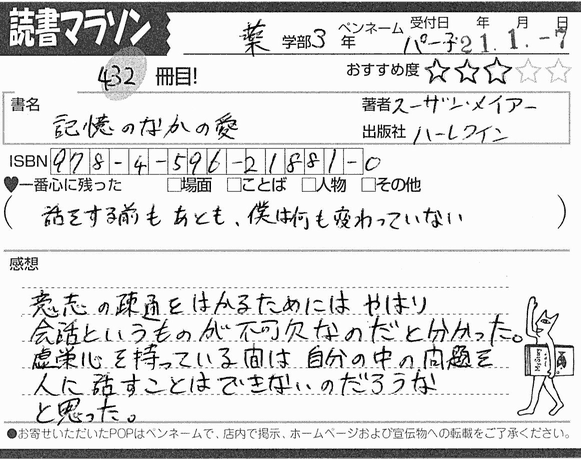 読書マラソン
薬 学部 3 年 ペンネーム パー子 受付日 21年 1月 -7日
432 冊目! おすすめ度 ★★★☆☆
書名 記憶のなかの愛
著者 スーザン・メイアー
出版社 ハーレクイン
ISBN 978-4-596-21881-0
♥一番心に残った □場面 □ことば □人物 □その他
(話をする前も あとも、僕は何も変わっていない)
感想
意志の疎通をはかるためには やはり
会話というものが不可欠なのだと分かった。
虚栄心を持っている間は 自分の中の問題を
人に話すことはできないのだろうな
と思った。
●お寄せいただいたPOPはペンネームで、店内で掲示、ホームページおよび宣伝物への転載をご了承ください。